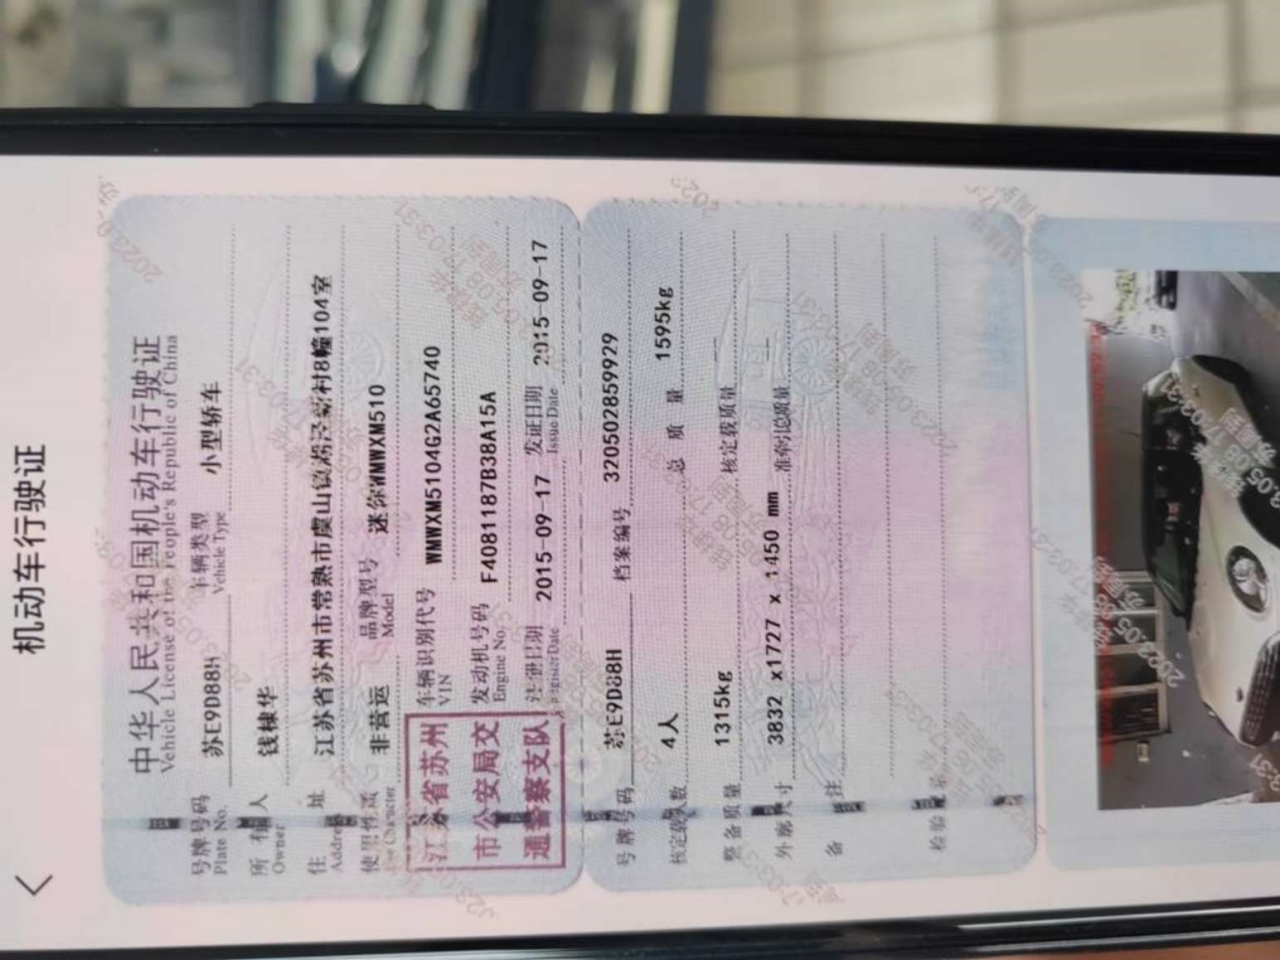 机动车行驶证
中华人民共和国机动车行驶证
Vehicle License of the People's Republic of China
号牌号码 苏E9D88H 车辆类型 小型轿车
Plate No. Vehicle Type
所有人 钱棣华
Owner
住址 江苏省苏州市常熟市虞山镇湘泾新村8幢104室
Address
使用性质 非营运 品牌型号 迷你WMWXM510
Use Character Model
江苏省苏州 车辆识别代号 WMWXM5104G2A65740
VIN
市公安局交 发动机号码 F4081187B38A15A
Engine No.
通警察支队 注册日期 2015-09-17 发证日期 2015-09-17
Register Date Issue Date
号牌号码 苏E9D88H 档案编号 320502859929
核定载人数 4人 总质量 1595kg
整备质量 1315kg 核定载质量 --
外廓尺寸 3832 x1727 x 1450 mm 准牵引总质量 --
备注
检验记录